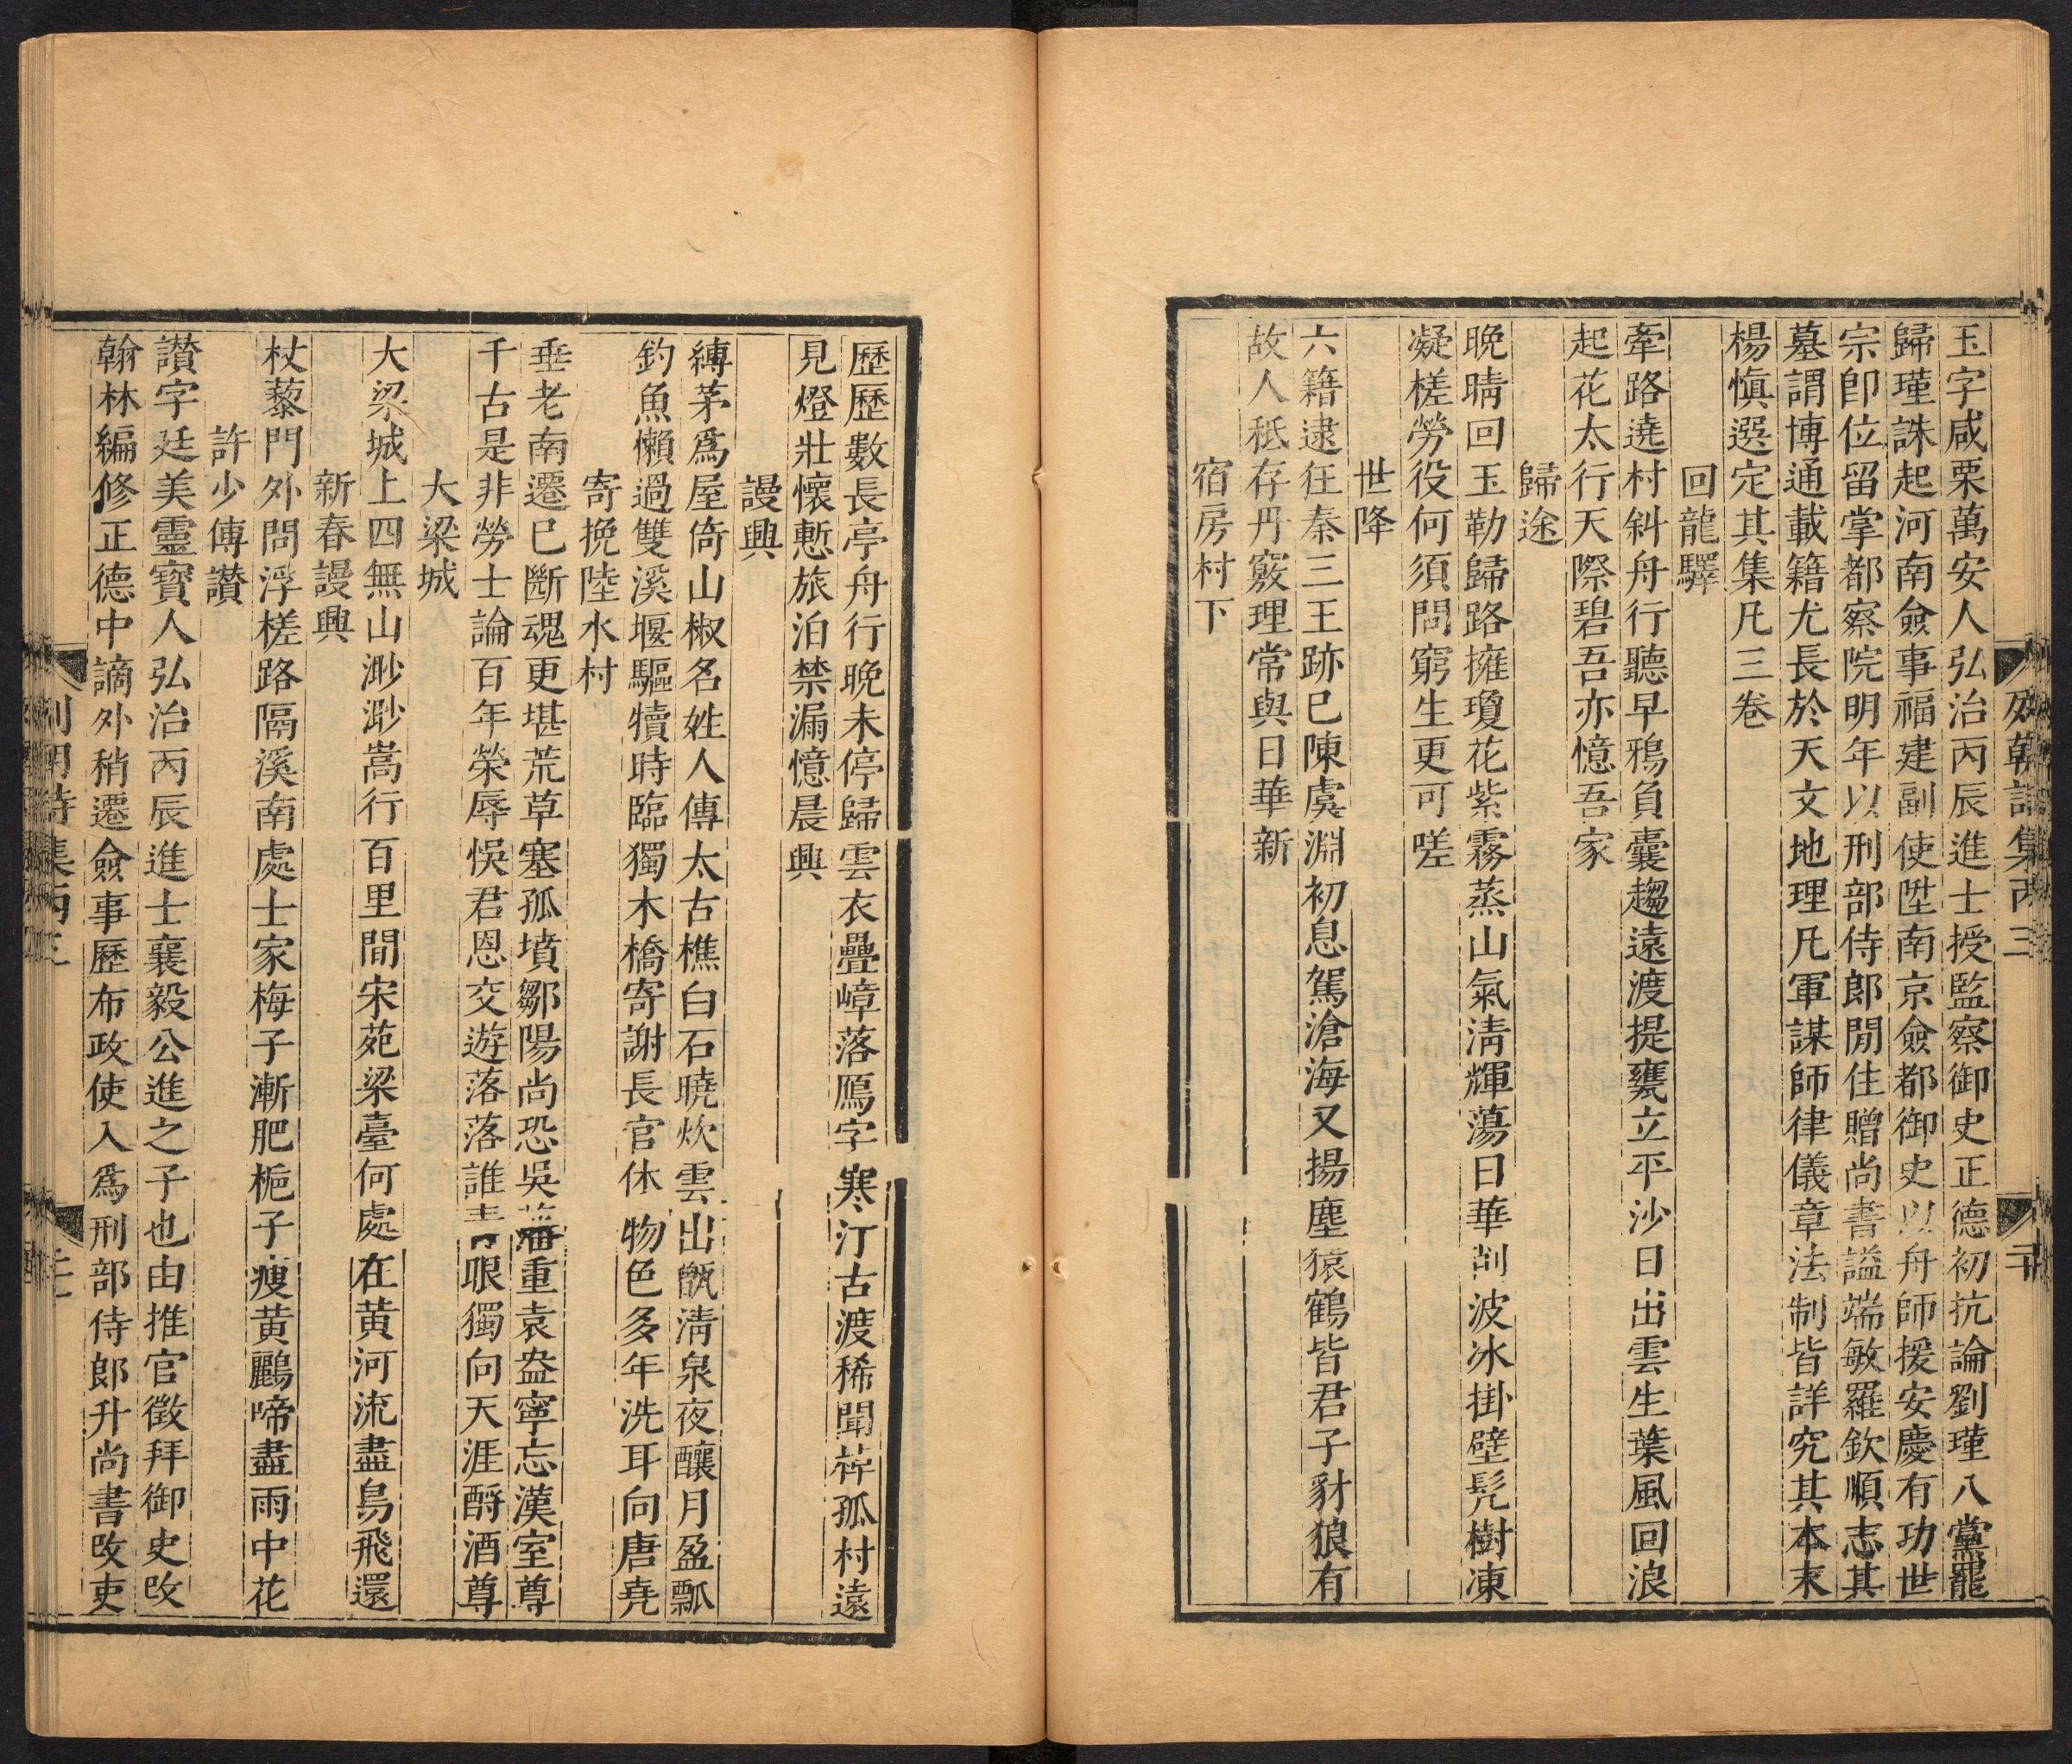 列朝詩集丙三
二十
玉字咸栗萬安人弘治丙辰進士授監察御史正德初抗論劉瑾八黨罷
歸瑾誅起河南僉事福建副使陞南京僉都御史以舟師援安慶有功世
宗卽位留掌都察院明年以刑部侍郎閒住贈尚書謚端敏羅欽順志其
墓謂博通載籍尤長於天文地理凡軍謀師律儀章法制皆詳究其本末
楊愼選定其集凡三卷
回龍驛
牽路遶村斜舟行聽早鴉負囊趨遠渡提甕立平沙日出雲生葉風回浪
起花太行天際碧吾亦憶吾家
歸途
晚晴回玉勒歸路擁瓊花紫霧蒸山氣淸輝蕩日華剖波冰掛壁髡樹凍
凝槎勞役何須問窮生更可嗟
世降
六籍逮任秦三王跡已陳虞淵初息駕滄海又揚塵猿鶴皆君子豺狼有
故人秪存丹竅理常與日華新
宿房村下
歷歷數長亭舟行晚未停歸雲衣疊嶂落鴈字寒汀古渡稀聞柝孤村遠
見燈壯懷慙旅泊禁漏憶晨興
謾興
縛茅爲屋倚山椒名姓人傳太古樵白石曉炊雲出甑淸泉夜釀月盈瓢
釣魚懶過雙溪堰驅犢時臨獨木橋寄謝長官休物色多年洗耳向唐堯
寄挽陸水村
垂老南遷已斷魂更堪荒草塞孤墳鄒陽尚恐吳藩重袁盎寧忘漢室尊
千古是非勞士論百年榮辱悞君恩交遊落落誰靑眼獨向天涯酹酒尊
大梁城
大梁城上四無山渺渺嵩行百里間宋苑梁臺何處在黄河流盡鳥飛還
新春謾興
杖藜門外問浮槎路隔溪南處士家梅子漸肥梔子瘦黄鸝啼盡雨中花
許少傅讚
讚字廷美靈寶人弘治丙辰進士襄毅公進之子也由推官徵拜御史改
翰林編修正德中謫外稍遷僉事歷布政使入爲刑部侍郎升尚書改吏
列朝詩集丙三